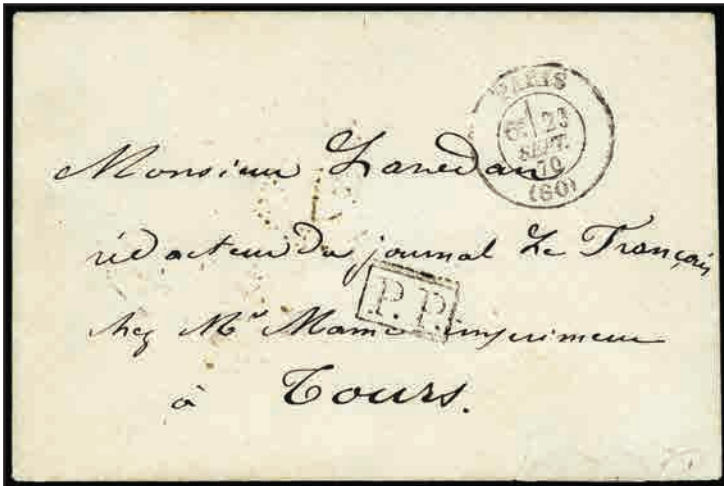 PARIS
6E 23
SEPT.
70
(60)
Monsieur Lavedan
rédacteur du journal Le Français
P.P.
chez Mr Mame imprimeur
à Tours.